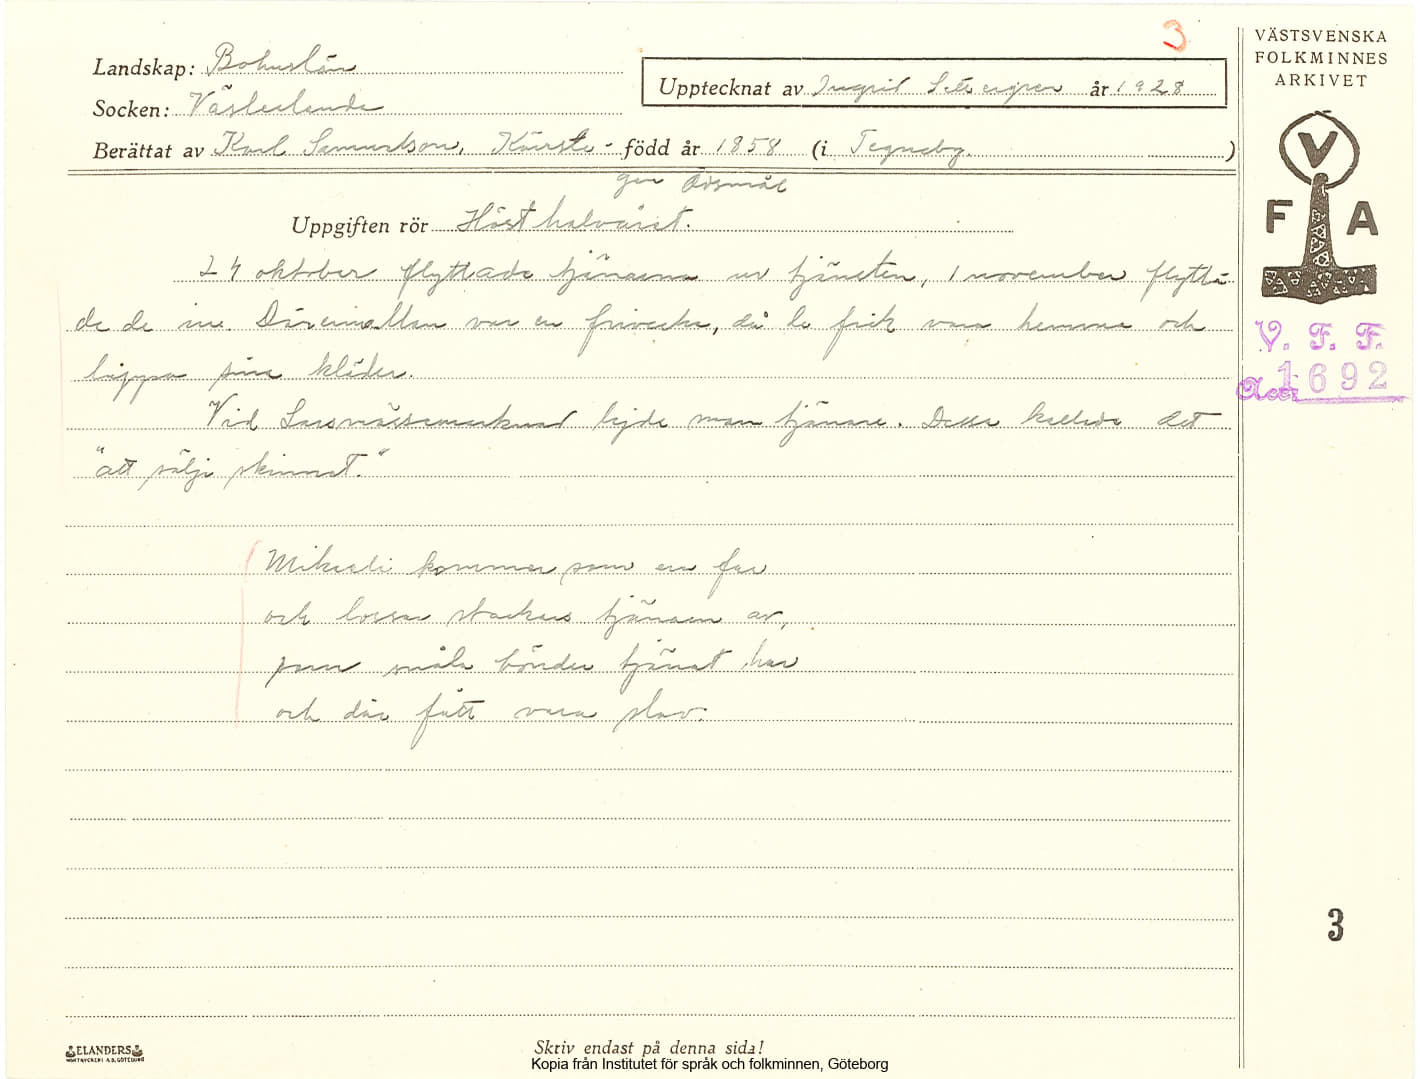 3
VÄSTSVENSKA
FOLKMINNES
ARKIVET
Landskap: Bohuslän
Upptecknat av Ingrid år 1928
Socken: Västerlanda
Berättat av Karl Samuelsson, Kärste- född år 1858 (i Tegneby.)
gen Ödsmål
V
F A
Uppgiften rör Höst halvåret.
24 oktober flyttade tjänarna ur tjänsten, 1 november flytta-
de de in. Däremellan var en frivecka, då de fick vara hemma och
lappa sina kläder.
V. F. F.
Acc: 1692
Vid Larsmässemarknad lejde man tjänare. Detta kallade det
"att sälje skinnet."
Mikaeli kommer som en far
och lossar stackars tjänaren av,
som snåla bönder tjänat har
och där fått vara slav.
3
ELANDERS
BOKTRYCKERI A.B. GÖTEBORG
Skriv endast på denna sida!
Kopia från Institutet för språk och folkminnen, Göteborg